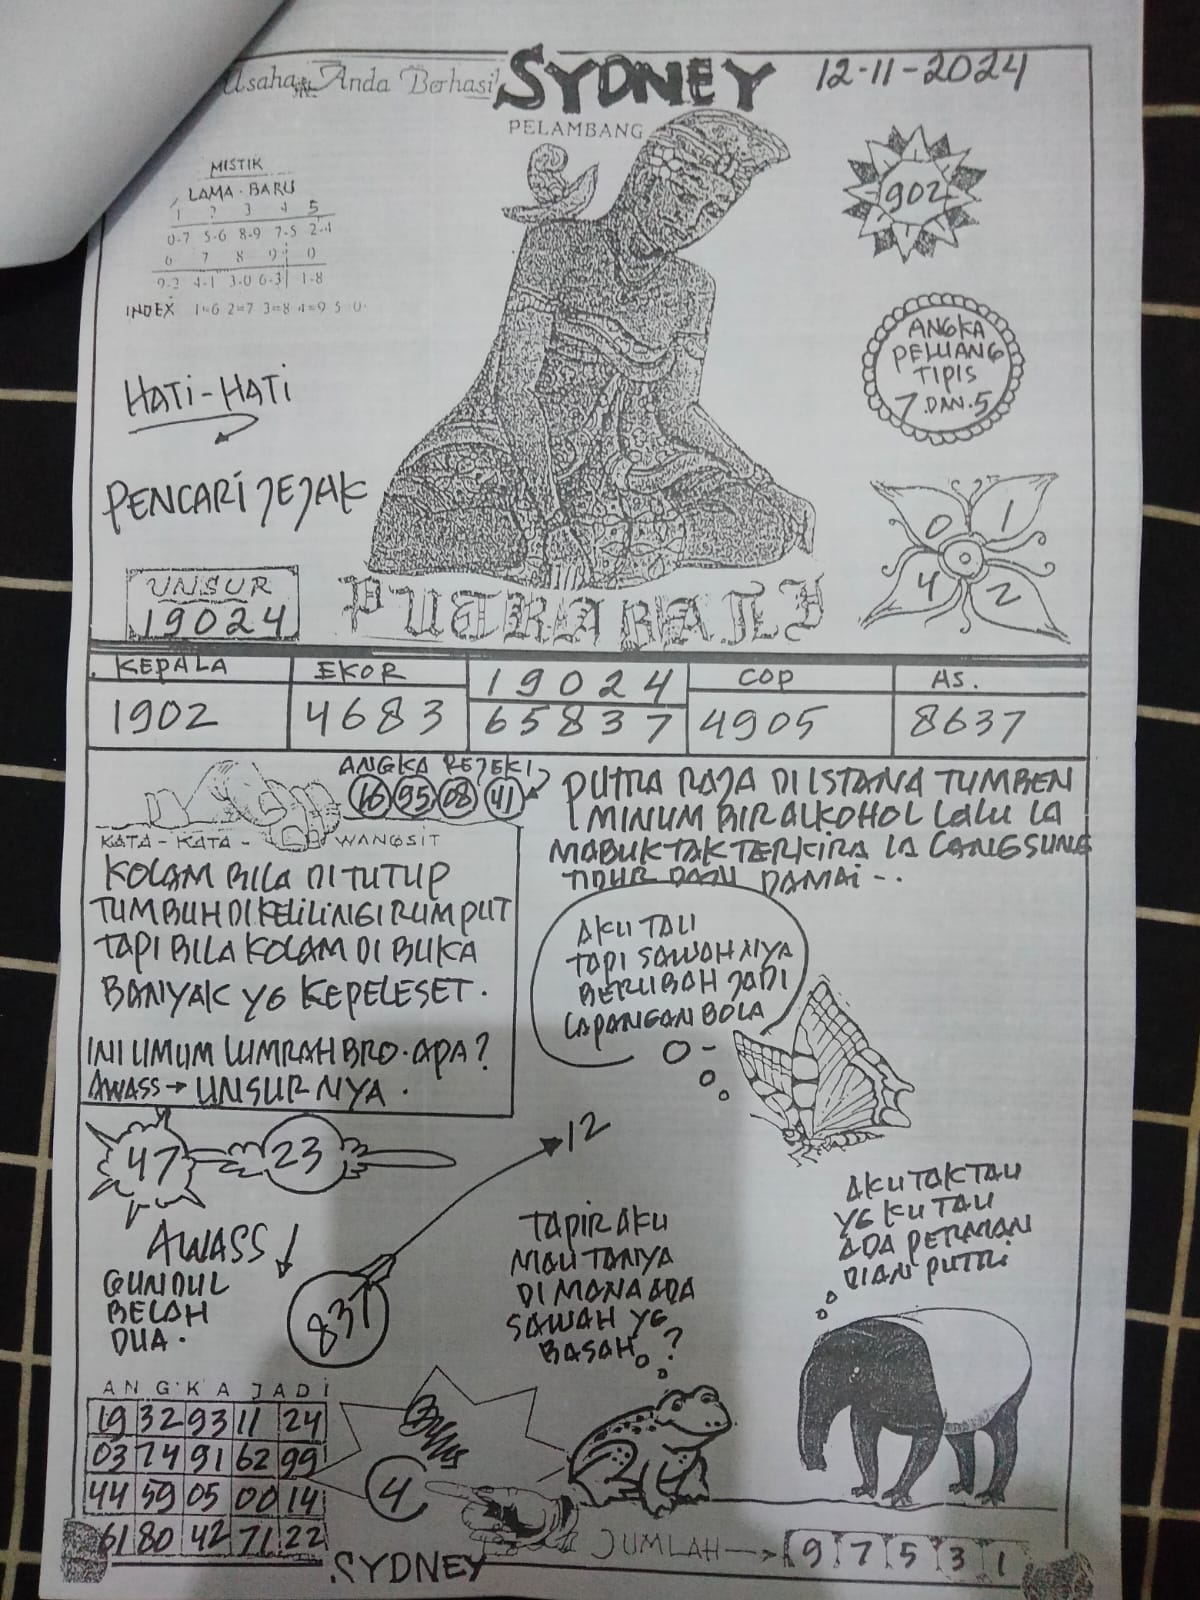 Usaha Anda Berhasil
SYDNEY
12-11-2024
PELAMBANG
MISTIK
LAMA . BARU
1 2 3 4 5
0-7 5-6 8-9 7-5 2-4
6 7 8 9 0
9-2 4-1 3-0 6-3 1-8
INDEX 1=6 2=7 3=8 4=9 5=0
902
ANGKA
PELUANG
TIPIS
7 DAN.5
HATI-HATI
PENCARI JEJAK
0 1
4 2
UNSUR
19024
PUTRA BALI
KEPALA
1902
EKOR
4683
19024
65837
COP
4905
AS.
8637
ANGKA REJEKI
16 95 08 41
KATA - KATA - WANGSIT
KOLAM BILA DI TUTUP
TUMBUH DI KELILINGI RUMPUT
TAPI BILA KOLAM DI BUKA
BANYAK YG KEPELESET.
INI UMUM LUMRAH BRO. APA?
AWASS → UNSURNYA.
PUTRA RAJA DI ISTANA TUMBEN
MINUM BIR ALKOHOL LALU IA
MABUK TAK TERKIRA IA LANGSUNG
TIDUR DAN DAMAI - ..
AKU TAU
TAPI SAWAHNYA
BERUBAH JADI
LAPANGAN BOLA
47 23
12
AWASS
GUNDUL
BELAH
DUA.
831
TAPIR AKU
MAU TANYA
DI MANA ADA
SAWAH YG
BASAH ?
AKU TAK TAU
YG KU TAU
ADA PERMAN
DIAN PUTRI
ANGKA JADI
19 32 93 11 24
03 74 91 62 99
44 59 05 00 14
61 80 42 71 22
4
SYDNEY
JUMLAH → 9 7 5 3 1